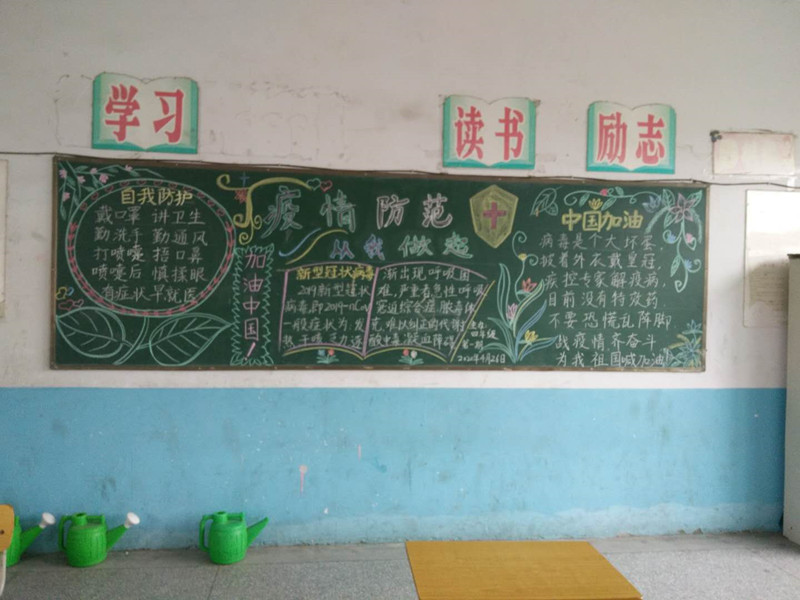 学习
读书
励志
自我防护
戴口罩 讲卫生
勤洗手 勤通风
打喷嚏 捂口鼻
喷嚏后 慎揉眼
有症状早就医
加油中国!
疫情防范
从我做起
新型冠状病毒
2019新型冠状
病毒,即2019-nCoV
一般症状为:发
热、干咳、乏力、逐
渐出现呼吸困
难,严重者急性呼吸
窘迫综合症,脓毒休
克,难以纠正的代谢
酸中毒,凝血障碍
四年级
第一期
2020年4月26日
中国加油
病毒是个大坏蛋
披着外衣戴皇冠,
疾控专家解疫病,
目前没有特效药,
不要恐慌乱阵脚
战疫情齐奋斗
为我祖国喊加油!